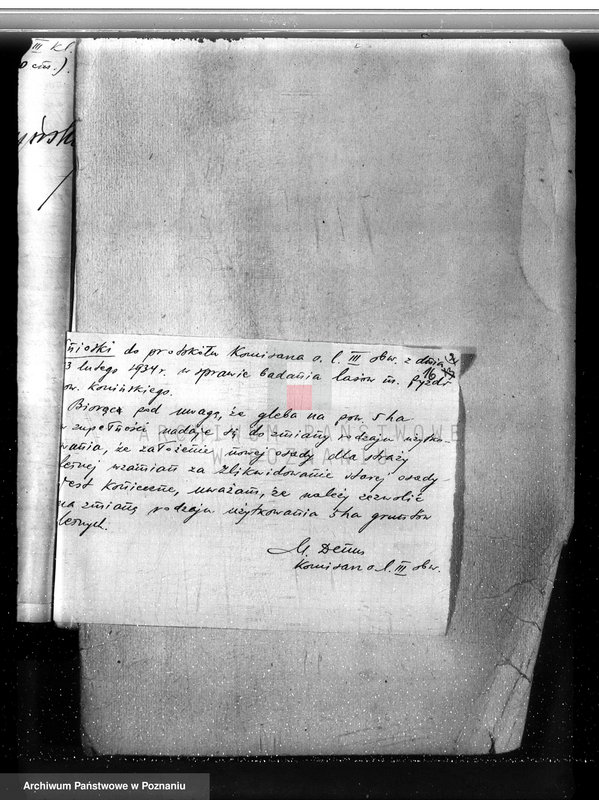 III kl.
0 cm.).
yński
nioski do protokółu Komisarza o. l. III obw. z dnia
3 lutego 1934 r. w sprawie badania lasów m. Pyzdr
ow. konińskiego.
16
Biorąc pod uwagę, że gleba na pow. 5 ha
w zupełności nadaje się do zmiany rodzaju użytko-
wania, że założenie nowej osady dla straży
leśnej wzamian za zlikwidowanie starej osady
jest konieczne, uważam, że należy zezwolić
na zmianę rodzaju użytkowania 5 ha gruntów
leśnych.
Komisarz o. l. III obw.
ARCHIWUM PAŃSTWOWE
W POZNANIU
Archiwum Państwowe w Poznaniu